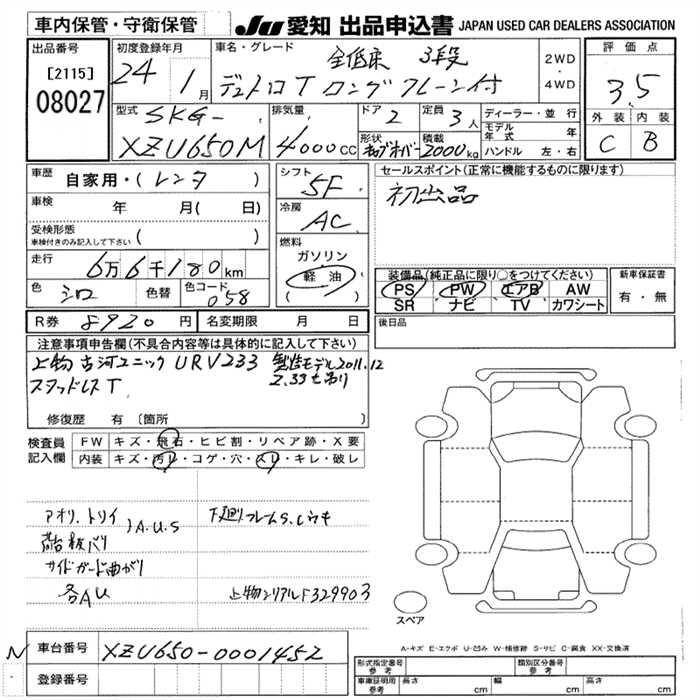 車内保管・守衛保管
JU 愛知 出品申込書 JAPAN USED CAR DEALERS ASSOCIATION
出品番号
[2115]
08027
初度登録年月
24 1月
車名・グレード
全低床 3段
デュトロT ロング クレーン付
2WD
・
4WD
評価点
3.5
外装 内装
C B
型式
SKG-
XZU650M
排気量
4000CC
ドア 2
定員 3人
形状
積載 2000kg
ディーラー・並行
モデル年式 年
ハンドル 左・右
車歴
自家用・(レンタ )
車検
年 月(日)
受検形態
車検付きのみ記入して下さい ( )
走行
6万6千180km
色 シロ
色替
色コード 058
シフト
5F
冷房
AC
燃料
ガソリン
軽油
( )
セールスポイント(正常に機能するものに限ります)
初出品
装備品(純正品に限り○をつけてください)
PS PW エアB AW
SR ナビ TV カワシート
新車保証書
有・無
R券 8920円
名変期限 月 日
後日品
注意事項申告欄(不具合内容等は具体的に記入して下さい)
上物古河ユニック URV233 製造モデル2011.12
スタッドレスT 2.33t吊り
修復歴 有〔箇所 〕
検査員
記入欄
FW キズ・飛石・ヒビ割・リペア跡・X要
内装 キズ・汚レ・コゲ・穴・スレ・キレ・破レ
アオリ、トリイ A.U.S
下廻りフレームS、
荷台板バリ
サイドガード曲がり
各AU
上物シリアルF329903
スペア
A-キズ E-エクボ U-凹み W-補修跡 S-サビ C-腐食 XX-交換済
N
車台番号 XZU650-0001452
登録番号
形式指定番号
参考
類別区分番号
参考
車庫証明用
参考
長さ cm
幅 cm
高さ cm